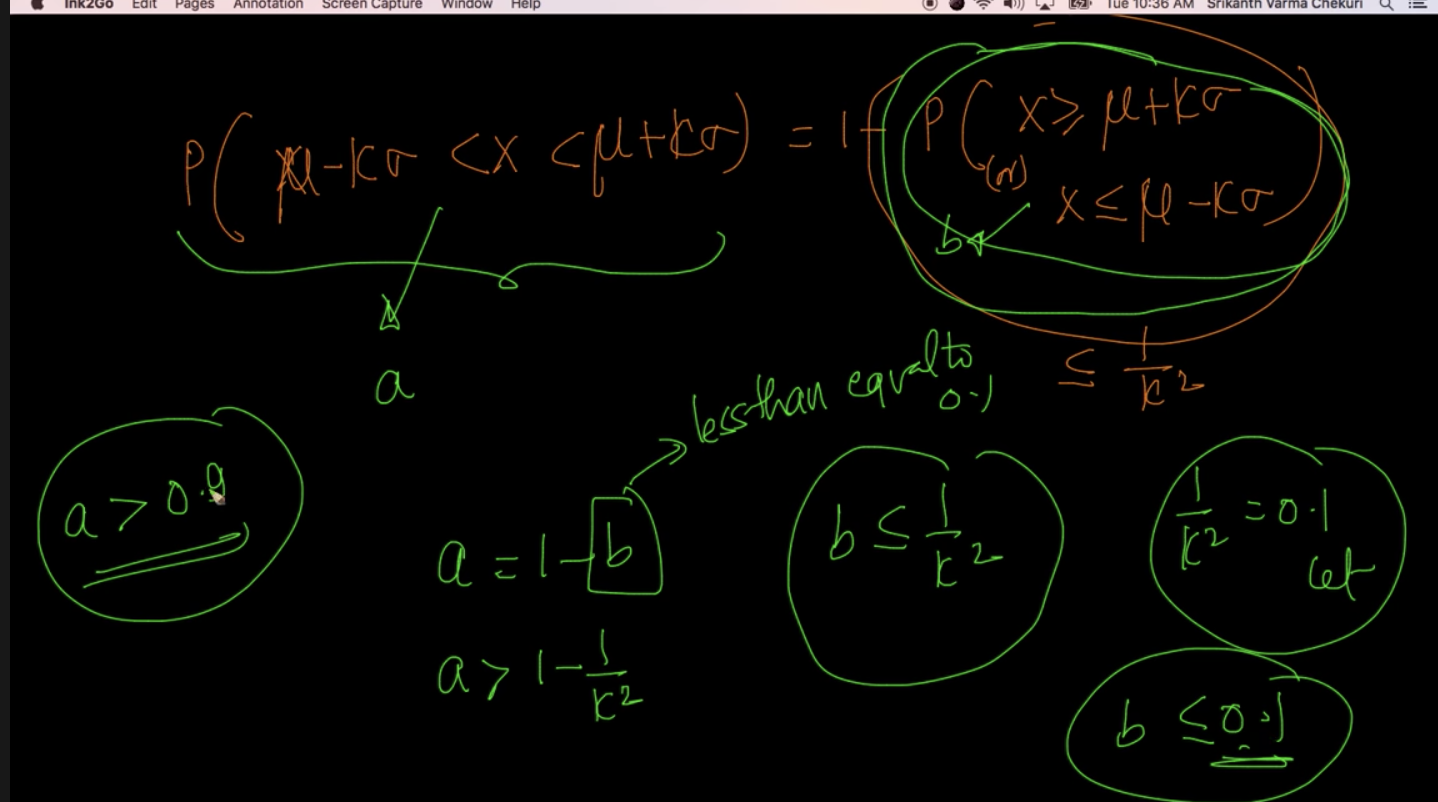 Ink2Go Edit Pages Annotation Screen Capture Window Help Tue 10:36 AM Srikanth Varma Chekuri
P(μ-kσ < x < μ+kσ) = 1 - P(x ≥ μ+kσ
(or)
x ≤ μ-kσ)
b
a
≤ 1/k²
less than equal to
0.1
a > 0.9
a = 1 - b
b ≤ 1/k²
1/k² = 0.1
let
a > 1 - 1/k²
b ≤ 0.1